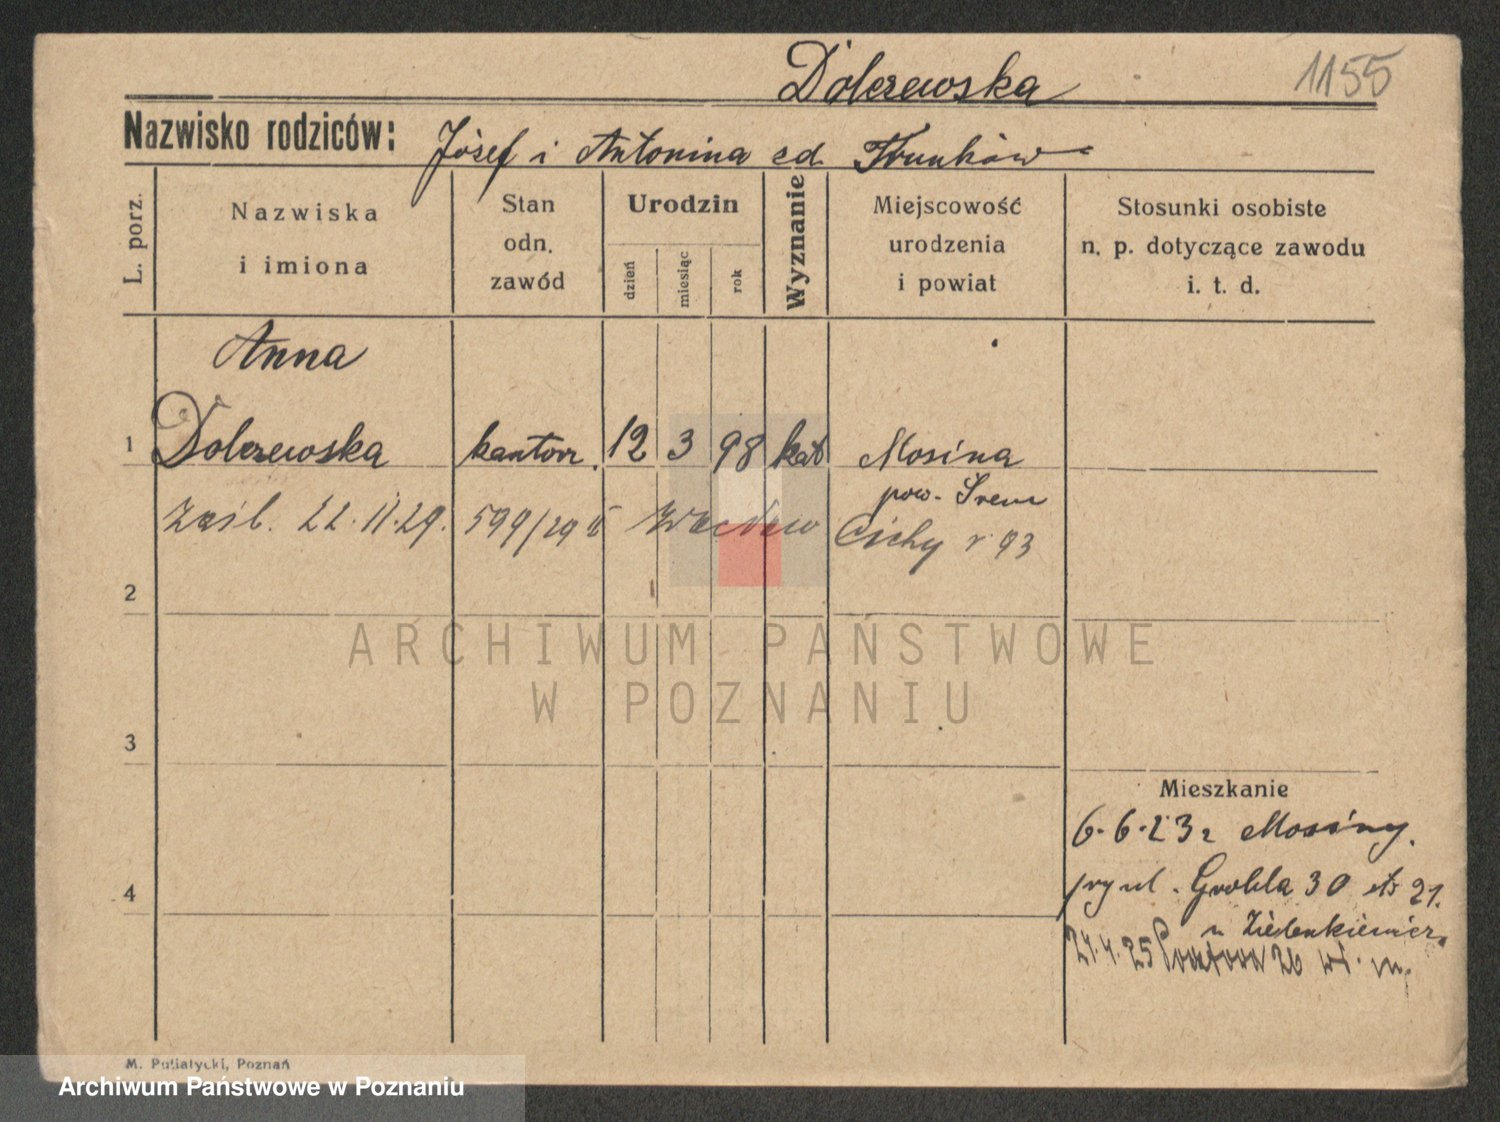 Dolczewska 1155
Nazwisko rodziców: Józef i Antonina z d. Frunków
L. porz.
Nazwiska
i imiona
Stan
odn.
zawód
Urodzin
dzień
miesiąc
rok
Wyznanie
Miejscowość
urodzenia
i powiat
Stosunki osobiste
n. p. dotyczące zawodu
i. t. d.
Anna
1 Dolczewska kantorz. 12 3 98 kat Mosina
pow. Śrem
Zaśl. 22.11.29. 599/29 Wacław Cichy r 93
2
ARCHIWUM PAŃSTWOWE
W POZNANIU
3
Mieszkanie
6.6.23 z Mosiny.
przy ul. Grobla 30 21.
4
u
21.4.25 26
M. Putiatycki, Poznań
Archiwum Państwowe w Poznaniu